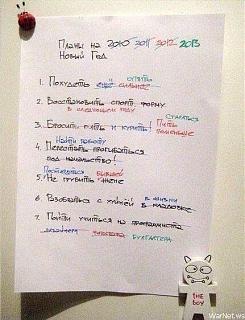 Планы на 2010 2011 2012 2013
Новый Год
опять
1. Похудеть ещё сильнее
2. Восстановить спорт. форму
в следующем году
стараться
пить
поменьше
3. Бросить пить и курить!
Найти работу
4. Перестать прогибаться
под начальство!
Постараться бывшей
5. Не грубить жене
6. Разобраться с кухней в жизни
в кладовке
7. Пойти учиться на программиста
дизайнера бухгалтера
THE
BOY
WarNet.ws